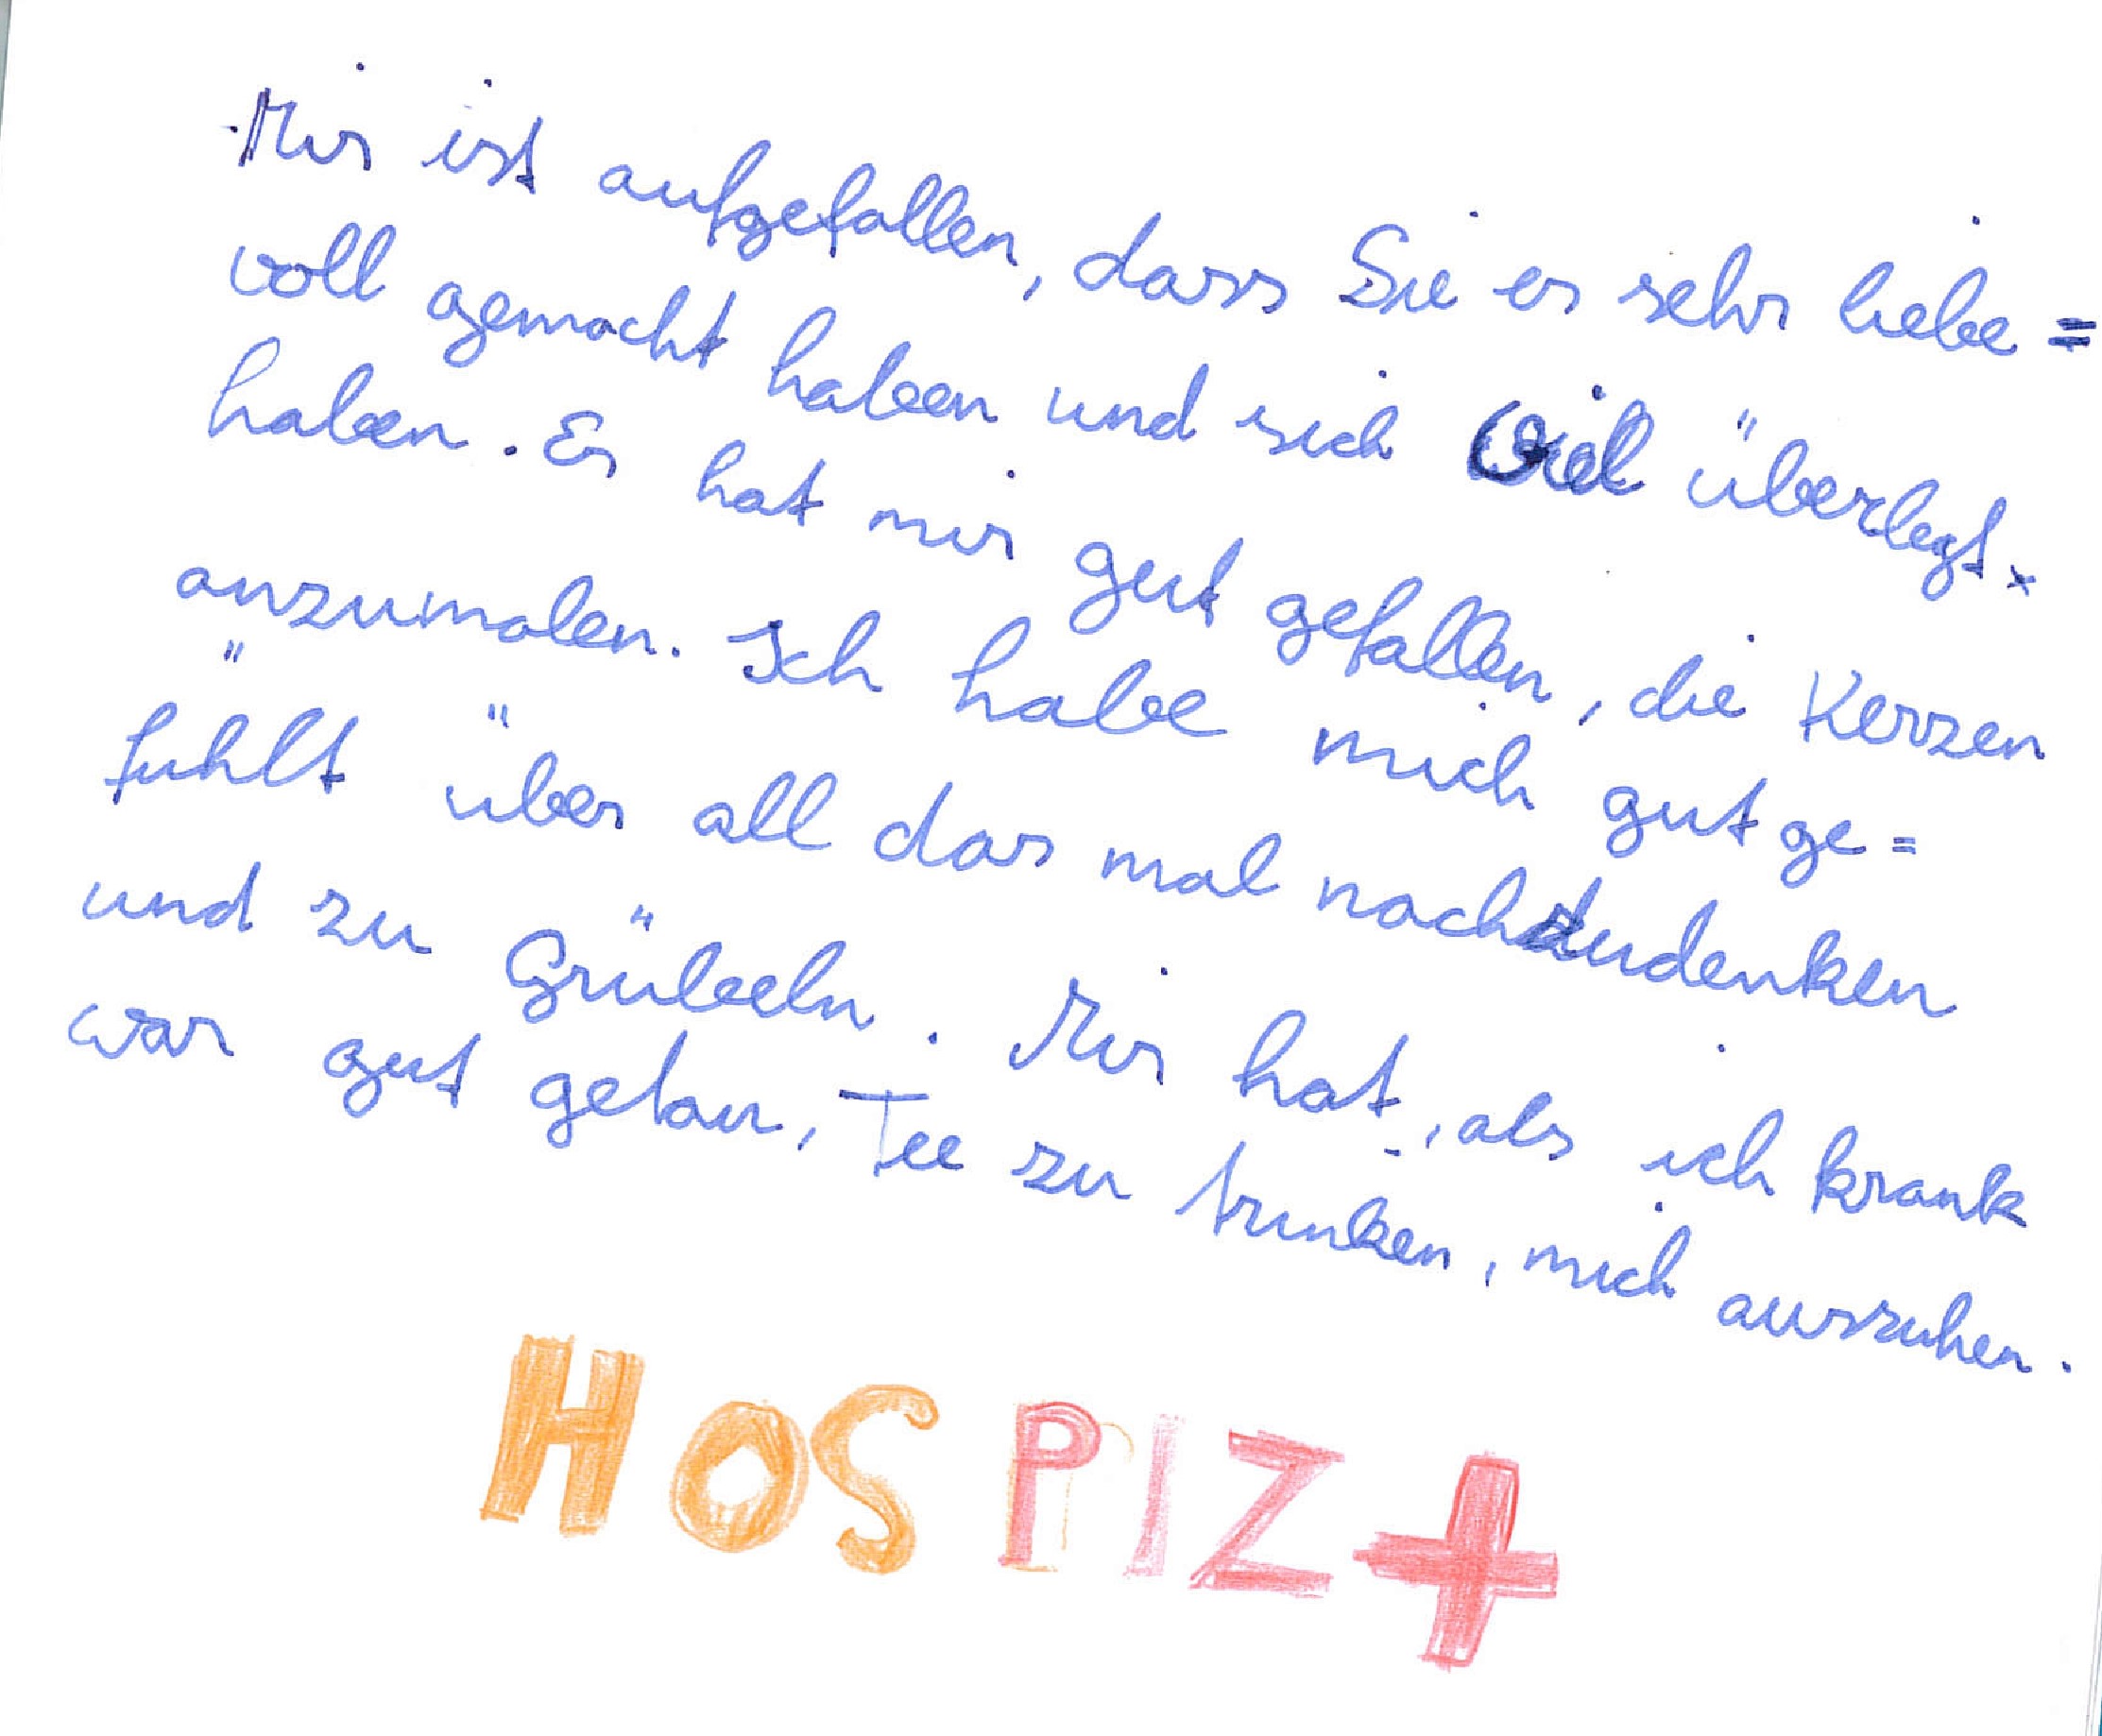 Mir ist aufgefallen, dass Sie es sehr liebe=
voll gemacht haben und sich viel überlegt
haben. Es hat mir gut gefallen, die Kerzen
anzumalen. Ich habe mich gut ge=
fühlt über all das mal nachzudenken
und zu Grübeln. Mir hat, als ich krank
war gut getan, Tee zu trinken, mich auszuruhen.
HOSPIZ